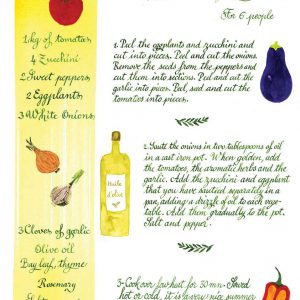 For 6 people
1 kg of tomatoes
4 Zucchini
2 Sweet peppers
2 Eggplants
3 White Onions
3 Cloves of garlic
Olive oil
Bay leaf, thyme
Rosemary
1. Peel the eggplants and zucchini and
cut into pieces. Peel and cut the onions.
Remove the seeds from the peppers and
cut them into sections. Peel and cut the
garlic into pieces. Peel, seed and cut the
tomatoes into pieces.
2. Sauté the onions in two tablespoons of oil
in a cast iron pot. When golden, add
the tomatoes, the aromatic herbs and the
garlic. Add the zucchini and eggplant
that you have sautéed separately in a
pan, adding a drizzle of oil to each vege-
table. Add them gradually to the pot.
Salt and pepper.
Huile
d'olive
3. Cook over low heat for 30 mn. Served
hot or cold, it is a very nice summer